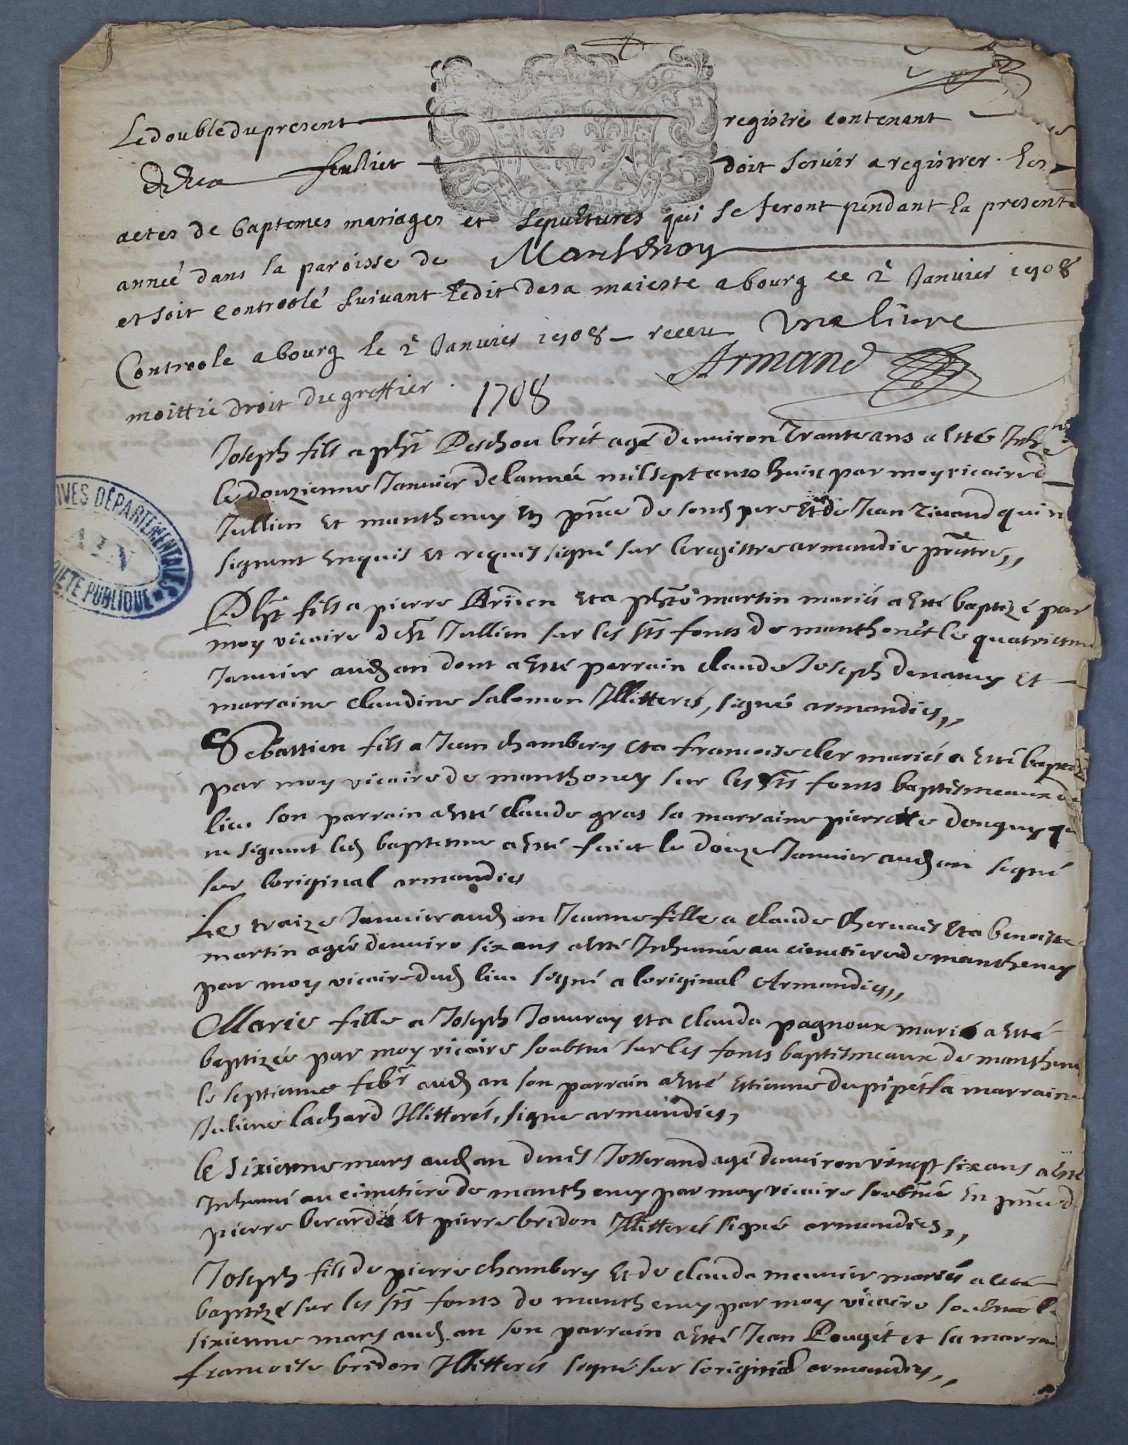 Le double du present registre contenant
feulliet doit servir a registrer les
actes de baptemes mariages et sepultures qui se feront pendant la presente
année dans la paroisse de Manthenoy
et soit controolé suivant ledit de sa maieste a bourg ce 2e Janvier 1708
Controole a bourg le 2e Janvier 1708 receu une livre
moittié droit du greffier Armand
1708
Joseph fils a pht Peschou brét agé denviron trante ans a esté Inhu
le douzienme Janvier de lannée mil sept ants huict par moy vicaire d
Jullien et manthenay en pnce de son d pere et de Jean Tivaud qui n
signent Enquis et requis signé sur le registre armandie prestre,,
Pht fils a pierre Briden et a phte martin mariés a esté baptizé par
moy vicaire de st Jullien sur les sts fonts de manthonét le quatrienme
Janvier aud an dont a esté parrain claude Joseph denamy et
marraine claudine salomon Illitterés, signé armandies,,
Sebattien fils a Jean chambery et a francoise cler mariés a esté baptizé
par moy vicaire de manthoney sur les sts fonts baptismeaux d
lieu son parrain a esté claude gras sa marraine pierrette donguy q
ne signent led baptesme a esté faict le douze Janvier aud an signé
sur loriginal armandies
Le traize Janvier aud an Jeanne fille a claude Chervais et a benoiste
martin agée denviro six ans a esté Inhumée au cimetiere de mantheney
par moy vicaire dud lieu signé a loriginal Armandies,,
Marie fille a Joseph Jouvray et a clauda pagnoux mariés a esté
baptizée par moy vicaire soubsné sur les fonts baptismeaux de manthene
le septienme febr aud an son parrain a esté Etienne du pipét sa marraine
Juliene lachard Illitterés, signe armandies,
le sixienme mars aud an denis Josserand agé denviron vingt six ans a esté
Inhumé au cimetiere de mantheney par moy vicaire soubsné En pnce d
pierre berardés et pierre bridon Illitterés signé armandies,,
Joseph fils de pierre chambery et de clauda meunier mariés a esté
baptizé sur les sts fonts de mantheney par moy vicaire soubsné le
sixienme mars aud an son parrain a esté Jean Pougét et sa marrai
francoise bridon Illitterés signé sur loriginal armandies,,
IVES DÉPARTEMENTALES
AIN
IETE PUBLIQUE